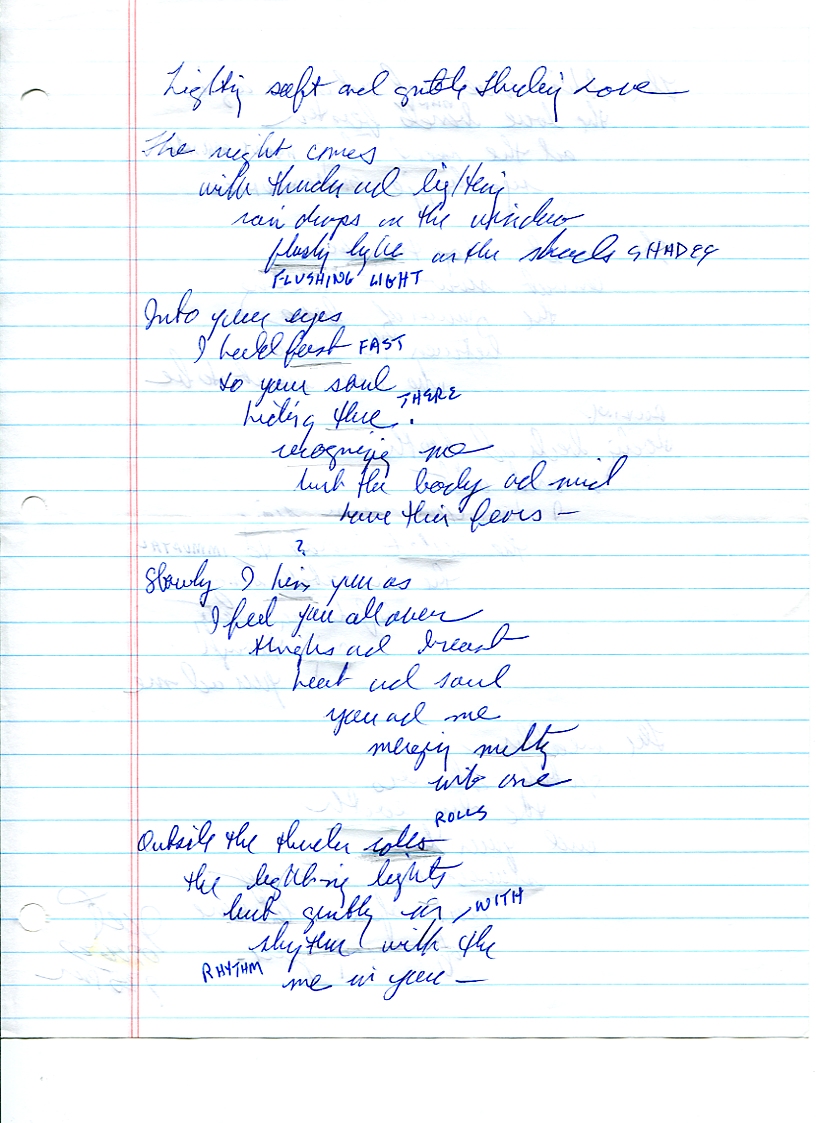 Lightig soft and gentle thunderig Love
The night comes
with thunder and lightnig
rain drops on the window
flashig light on the shades SHADES
FLUSHING LIGHT
Into your eyes
I held fast FAST
to your soul
THERE
hiding there.
recognizing me
but the body and mind
have thier fears —
?
Slowly I kiss you as
I feel you all over
thighs and breast
heart and soul
you and me
merging melting
into one
ROLLS
Outside the thunder rolls
the lightning lights
but gently in WITH
rhythm with the
RHYTHM me in you —